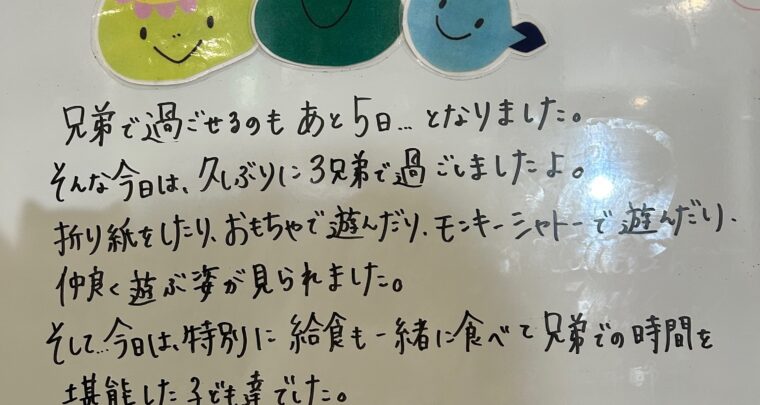 兄弟で過ごせるのも あと5日… となりました。
そんな今日は、久しぶりに3兄弟で過ごしましたよ。
折り紙をしたり、おもちゃで遊んだり、モンキーシャトーで遊んだり、
仲良く遊ぶ姿が見られました。
そして…今日は、特別に給食も一緒に食べて兄弟での時間を
堪能した子ども達でした。